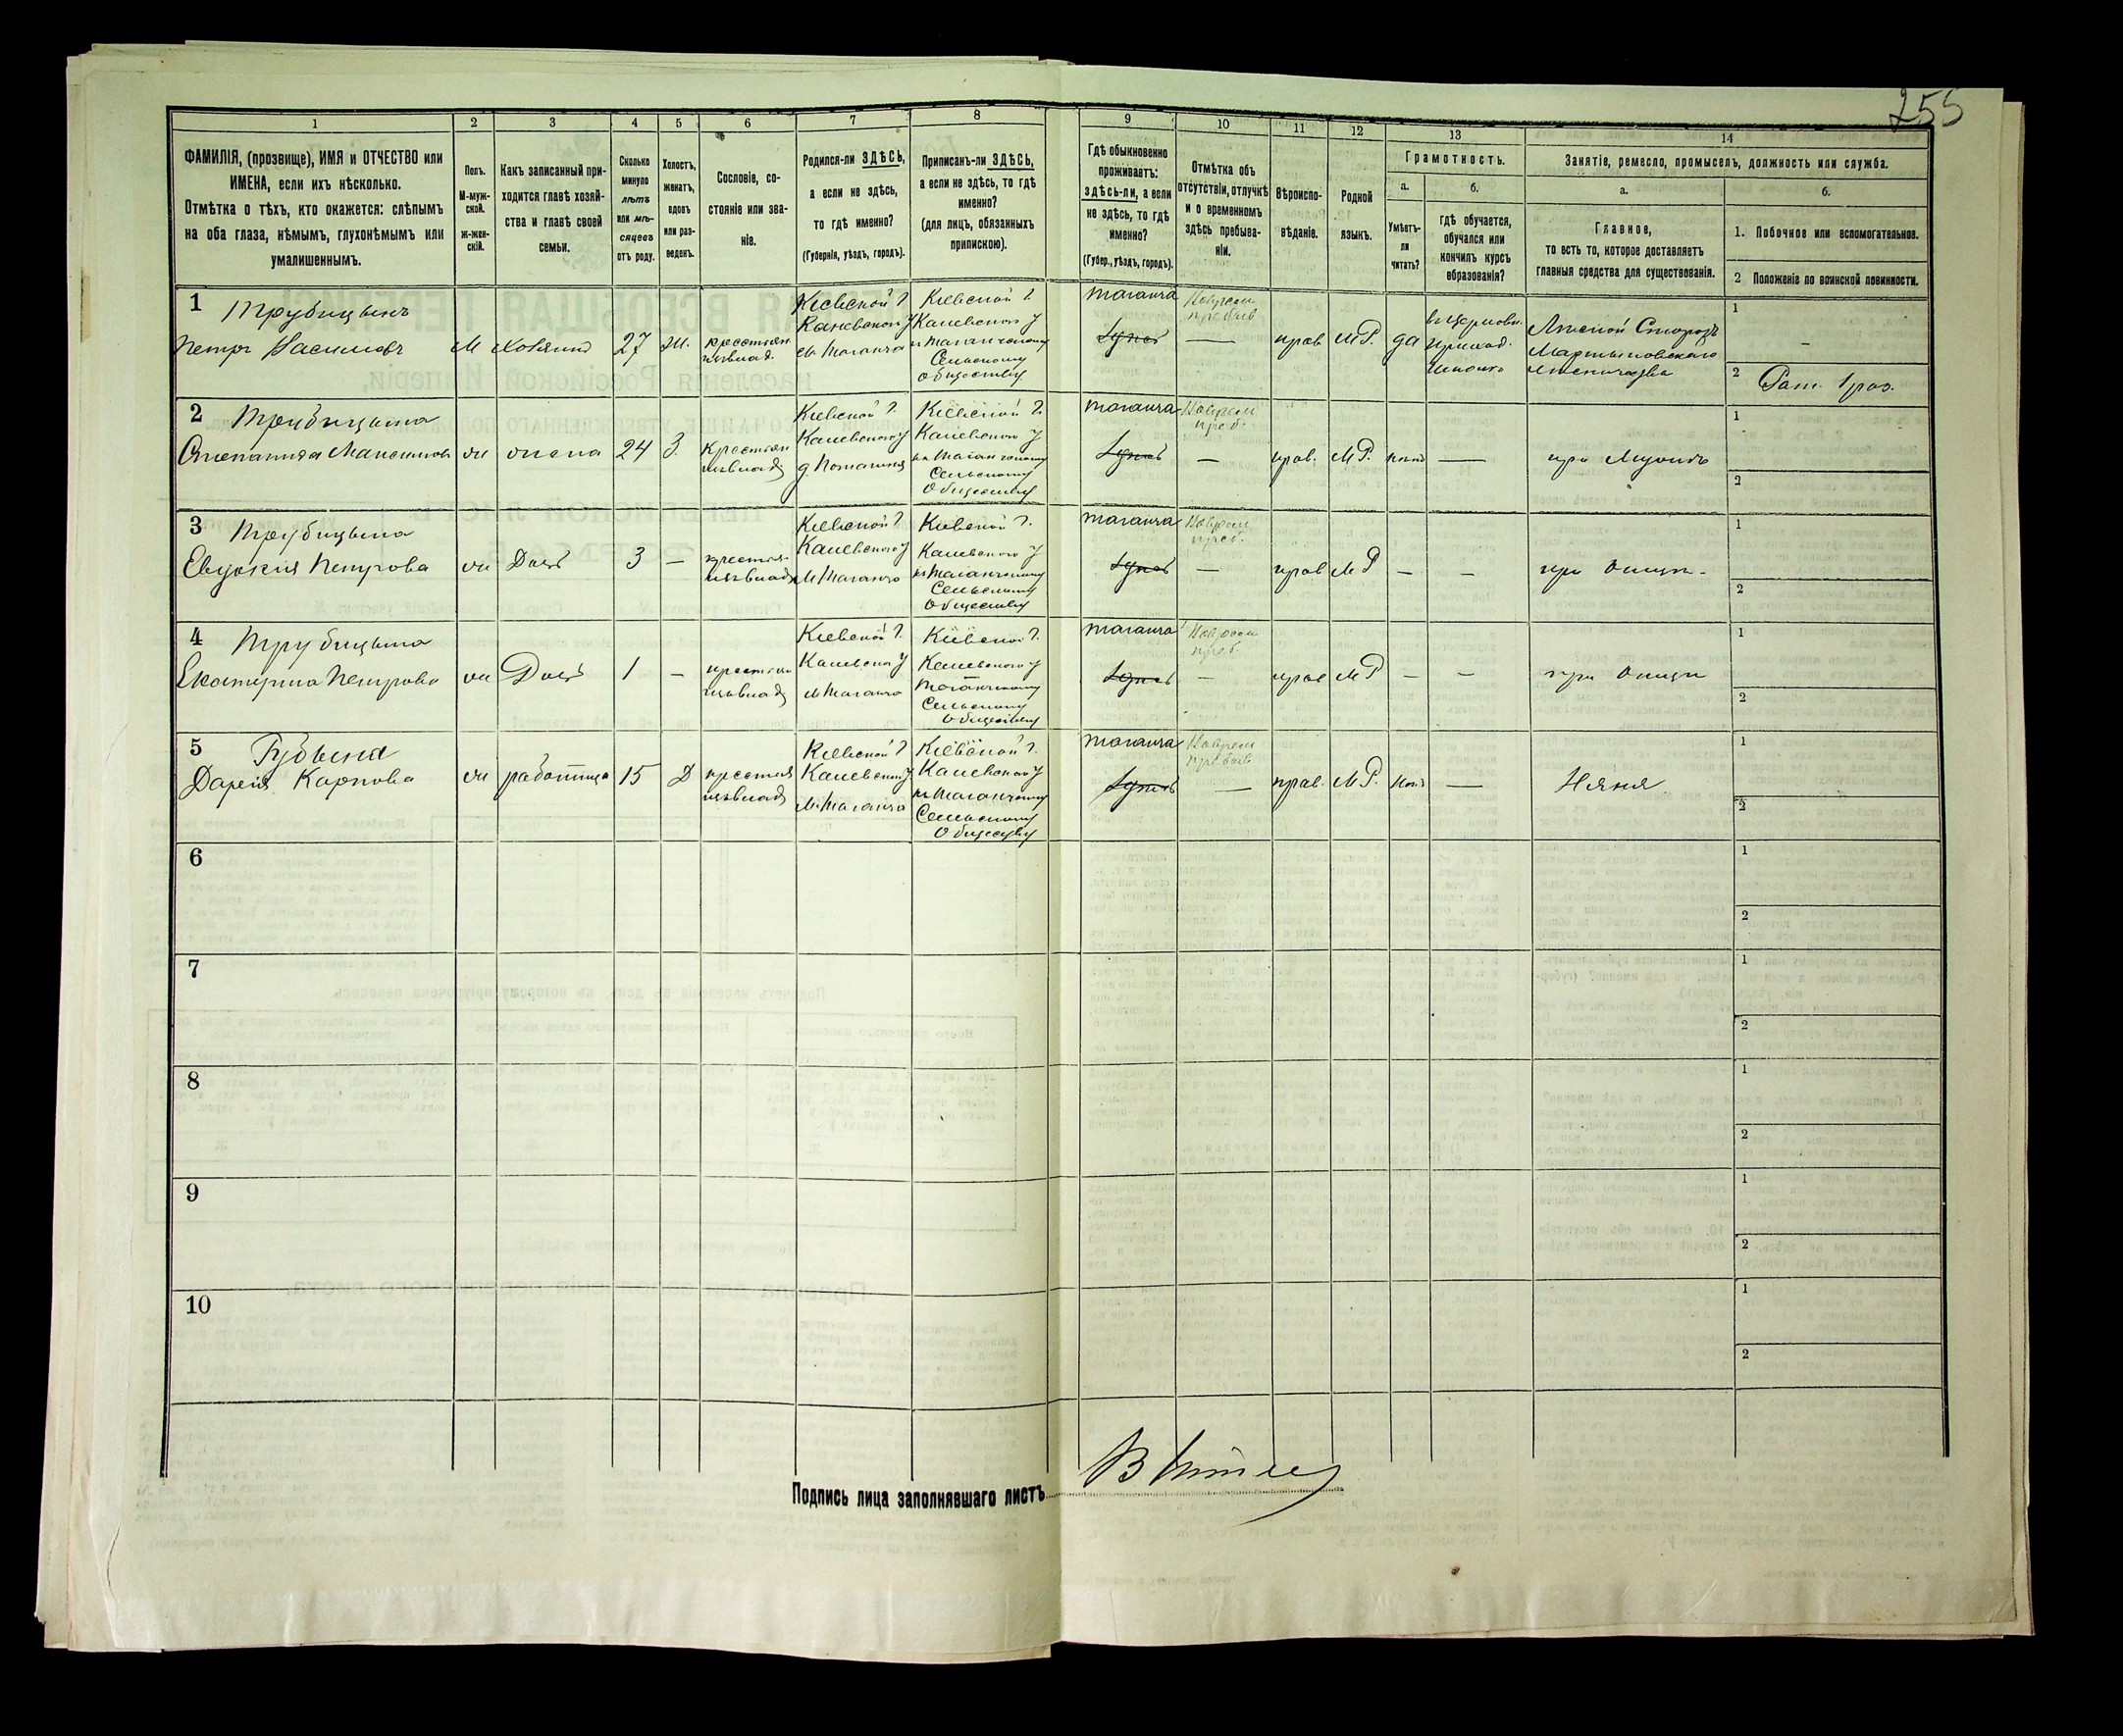 255
1 2 3 4 5 6 7 8 9 10 11 12 13 14
ФАМИЛІЯ, (прозвище), ИМЯ и ОТЧЕСТВО или
ИМЕНА, если ихъ нѣсколько.
Отмѣтка о тѣхъ, кто окажется: слѣпымъ
на оба глаза, нѣмымъ, глухонѣмымъ или
умалишеннымъ.
Полъ.
М-муж-
ской.
Ж-жен-
скій.
Какъ записанный при-
ходится главѣ хозяй-
ства и главѣ своей
семьи.
Сколько
минуло
лѣтъ
или мѣ-
сяцевъ
отъ роду.
Холостъ,
женатъ,
вдовъ
или раз-
веденъ.
Сословіе, со-
стояніе или зва-
ніе.
Родился-ли ЗДѢСЬ,
а если не здѣсь,
то гдѣ именно?
(Губернія, уѣздъ, городъ).
Приписанъ-ли ЗДѢСЬ,
а если не здѣсь, то гдѣ
именно?
(для лицъ, обязанныхъ
припискою).
Гдѣ обыкновенно
проживаетъ:
здѣсь-ли, а если
не здѣсь, то гдѣ
именно?
(Губер., уѣздъ, городъ).
Отмѣтка объ
отсутствіи, отлучкѣ
и о временномъ
здѣсь пребыва-
ніи.
Вѣроиспо-
вѣданіе.
Родной
языкъ.
Грамотность.
а.
Умѣетъ-
ли
читать?
б.
гдѣ обучается,
обучался или
кончилъ курсъ
образованія?
Занятіе, ремесло, промыселъ, должность или служба.
а.
Главное,
то есть то, которое доставляетъ
главныя средства для существованія.
б.
1. Побочное или вспомогательное.
2 Положеніе по воинской повинности.
1 Трубицынъ
Петръ Василіевъ
М
Хозяинъ
27
Ж.
крестьян.
изъ влад.
Кіевской г.
Каневскаго у
М. Таганча
Кіевской г.
Каневского у
къ Таганчскому
Сельскому
обществу
Таганча
Времен
—
прав
МР.
да
въ церковн.
приход.
Лѣсной Сторожъ
Мартыновскаго
лѣсничества
1 -
2 Рат. 1 раз.
2 Трубицына
Степанида Максимова
ж
жена
24
З.
Крестьян
изъ влад
Кіевской г.
Каневского у
Кіевской г.
Каневского у
къ Таганчскому
Сельскому
Обществу
Таганча
—
прав.
МР.
нѣтъ
—
при Мужѣ
1
2
3 Трубицына
Евдокія Петрова
ж
Дочь
3
—
крестьян
изъ влад
Кіевской г.
Каневского у
М Таганча
Кіевской г.
Каневского у
къ Таганчскому
Сельскому
Обществу
Таганча
—
прав
МР
—
—
при Отцѣ.
1
2
4 Трубицына
Екатерина Петрова
ж
Дочь
1
—
крестьян
изъ влад
Кіевской г.
Каневского у
М Таганча
Кіевской г.
Каневского у
Таганчскому
Сельскому
Обществу
Таганча
—
прав
МР
—
—
при Отцѣ
1
2
5
Дарія Карпова
ж
работница
15
Д
крестьян
изъ влад
Кіевской г
Каневского у
М. Таганча
Кіевской г.
Каневского у
къ Таганчскому
Сельскому
Обществу
Таганча
—
прав.
МР.
нѣтъ
—
Няня
1
2
6
1
2
7
1
2
8
1
2
9
1
2
10
1
2
Подпись лица заполнявшаго листъ